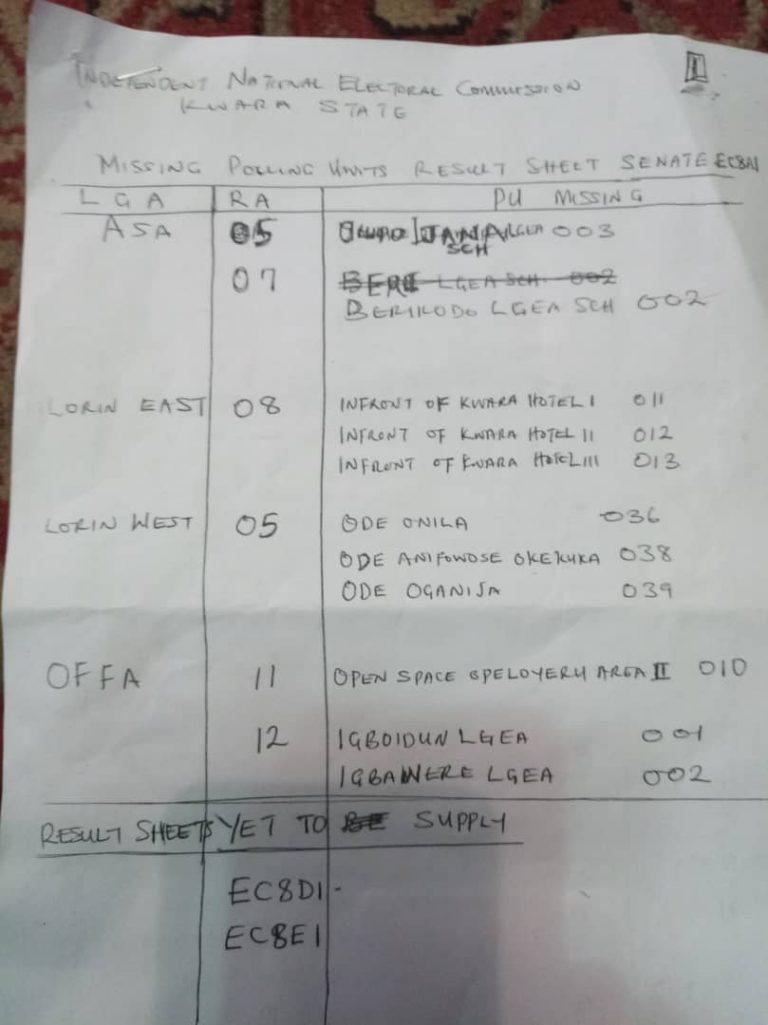 INDEPENDENT NATIONAL ELECTORAL COMMISSION
KWARA STATE
MISSING POLLING UNITS RESULT SHEET SENATE EC8A1
LGA RA PU MISSING
ASA 05 LGEA 003
SCH
07 BERE LGEA SCH. 002
BERIKODO LGEA SCH 002
LORIN EAST 08 INFRONT OF KWARA HOTEL I 011
INFRONT OF KWARA HOTEL II 012
INFRONT OF KWARA HOTEL III 013
LORIN WEST 05 ODE ONILA 036
ODE ANIFOWOSE OKEKUKA 038
ODE OGANIJA 039
OFFA 11 OPEN SPACE OPELOYERU AREA II 010
12 IGBOIDUN LGEA 001
IGBAWERE LGEA 002
RESULT SHEETS YET TO BE SUPPLY
EC8D1
EC8E1